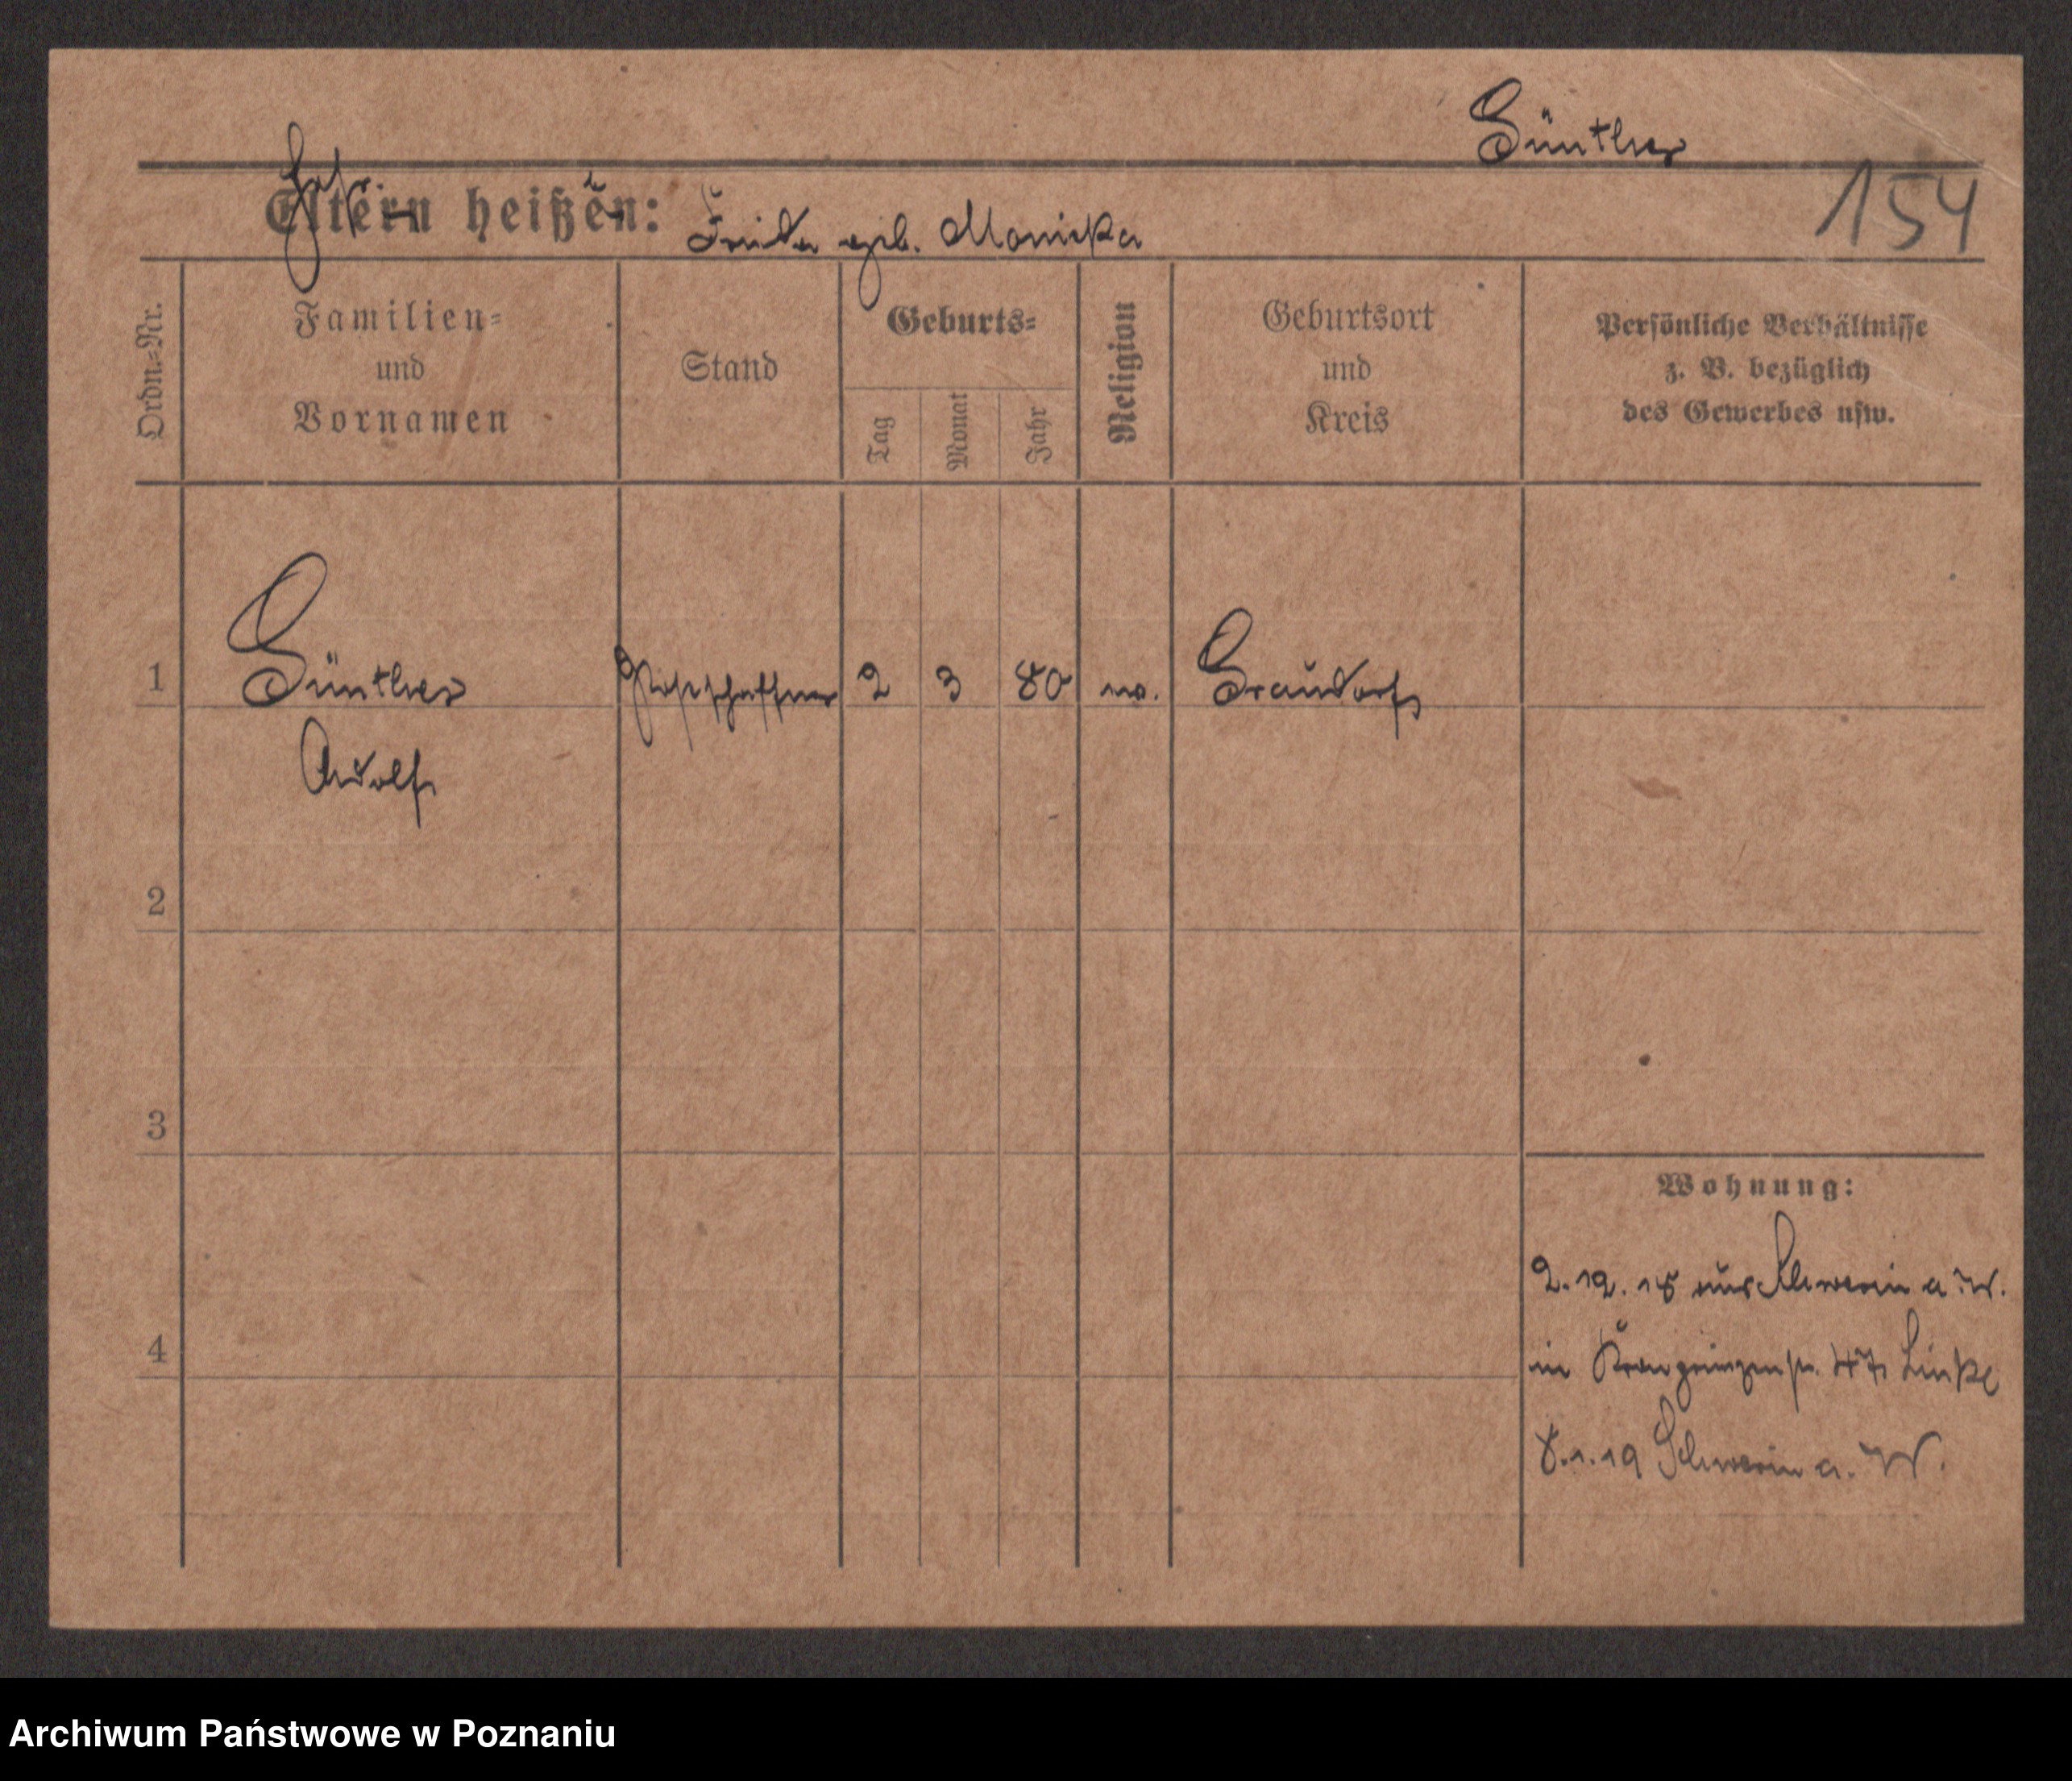 Günther
Eltern heißen: Frieda geb. Monicka
154
Ordn.=Nr.
Familien=
und
Vornamen
Stand
Geburts=
Tag
Monat
Jahr
Religion
Geburtsort
und
Kreis
Persönliche Verhältnisse
z. B. bezüglich
des Gewerbes usw.
1 Günther Postschaffner 2 3 80 Graudorf
Adolf
2
3
4
Wohnung:
2.12.18 aus Schwerin a W.
in Kronprinzenstr. 47 Linke
8.1.19 Schwerin a. W.
Archiwum Państwowe w Poznaniu